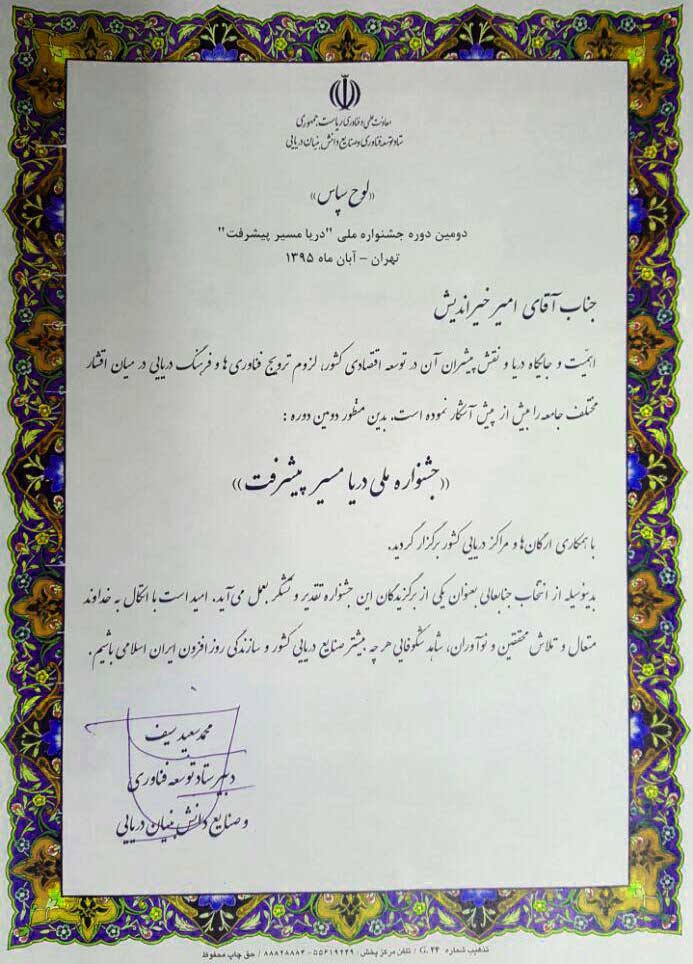 معاونت علمی و فناوری ریاست جمهوری
ستاد توسعه فناوری و صنایع دانش بنیان دریایی
«لوح سپاس»
دومین دوره جشنواره ملی "دریا مسیر پیشرفت"
تهران - آبان ماه ۱۳۹۵
جناب آقای امیر خیراندیش
اهمیّت و جایگاه دریا و نقش پیشران آن در توسعه اقتصادی کشور، لزوم ترویج فناوری ها و فرهنگ دریایی در میان اقشار
مختلف جامعه را بیش از پیش آشکار نموده است. بدین منظور دومین دوره :
((جشنواره ملی دریا مسیر پیشرفت))
با همکاری ارگان ها و مراکز دریایی کشور برگزار گردید.
بدینوسیله از انتخاب جنابعالی بعنوان یکی از برگزیدگان این جشنواره تقدیر و تشکر بعمل می آید. امید است با اتکال به خداوند
متعال و تلاش محققین و نوآوران، شاهد شکوفایی هر چه بیشتر صنایع دریایی کشور و سازندگی روز افزون ایران اسلامی باشیم.
محمد سعید سیف
دبیر ستاد توسعه فناوری
و صنایع دانش بنیان دریایی
تذهیب شماره G.۲۴ / تلفن مرکز پخش: ۵۵۶۱۹۲۴۹ - ۸۸۸۲۸۸۸۳ / حق چاپ محفوظ